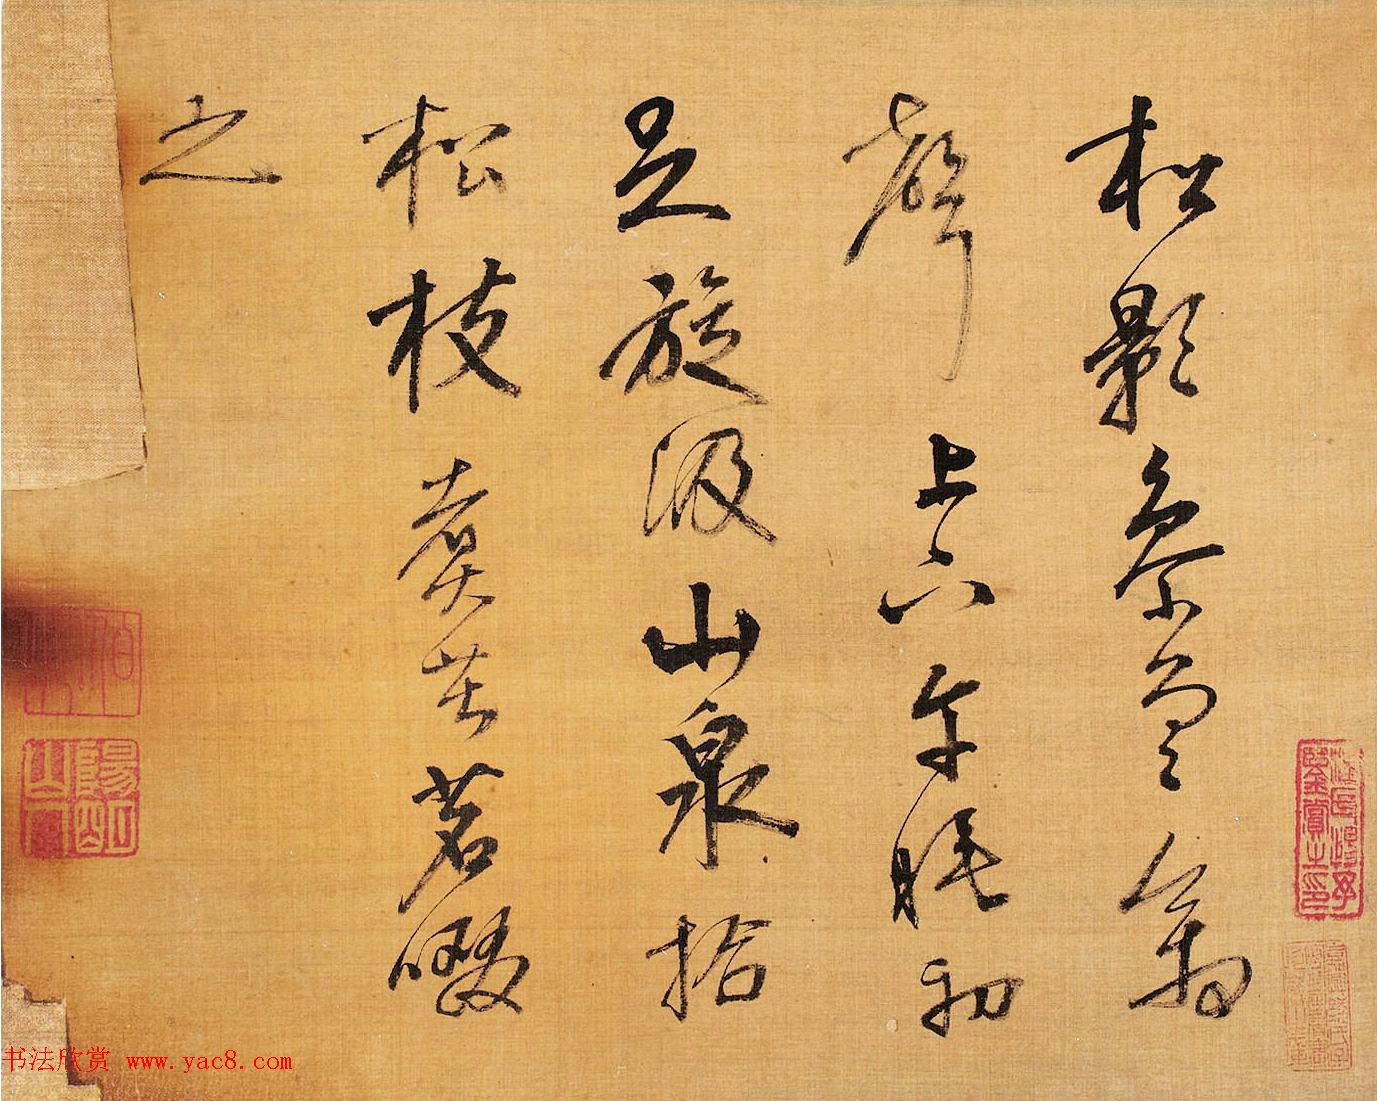 松影參差禽
聲上下午睡初
足旋汲山泉拾
松枝煮苦茗啜
之
書法欣赏 www.yac8.com